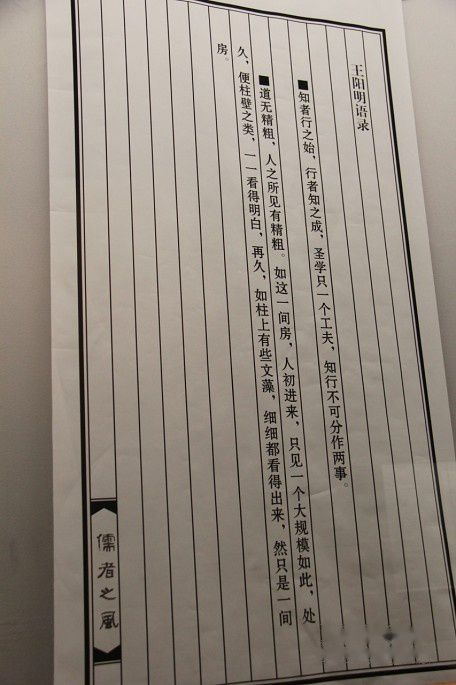 王阳明语录
■知者行之始，行者知之成，圣学只一个工夫，知行不可分作两事。
■道无精粗，人之所见有精粗。如这一间房，人初进来，只见一个大规模如此，处
久，便柱壁之类，一一看得明白，再久，如柱上有些文藻，细细都看得出来，然只是一间
房。
儒者之风